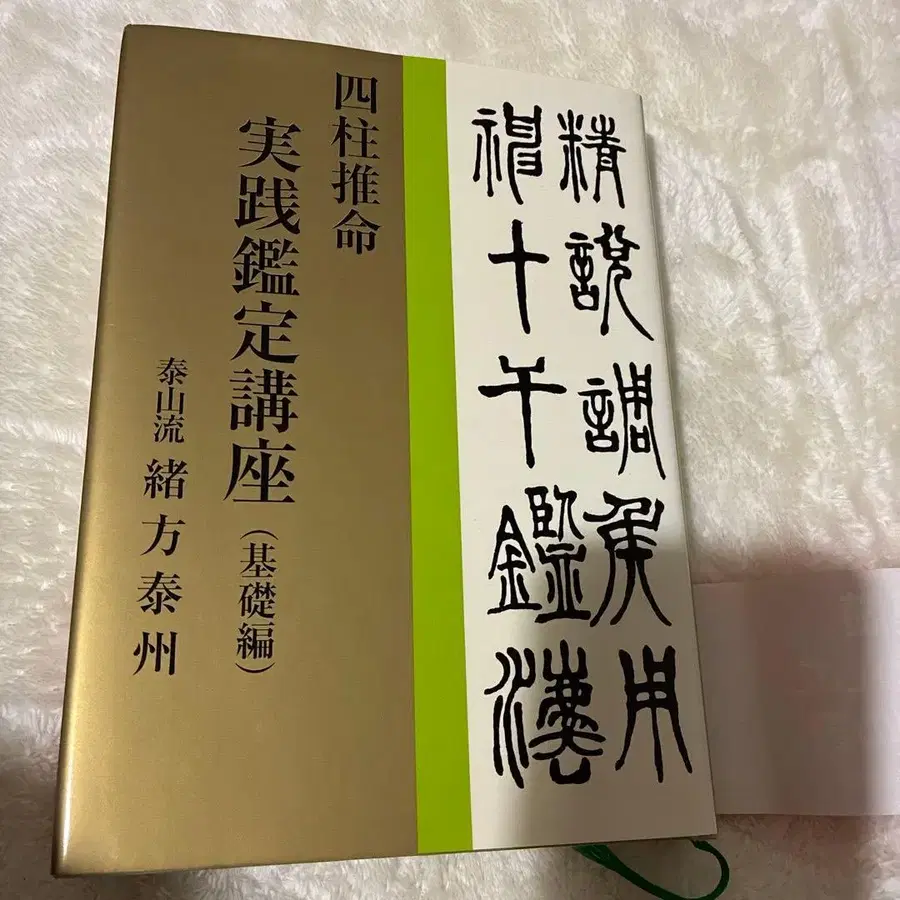 四柱推命
実践鑑定講座
(基礎編)
泰山流 緒方泰州
精說調矦用
神十干鑑